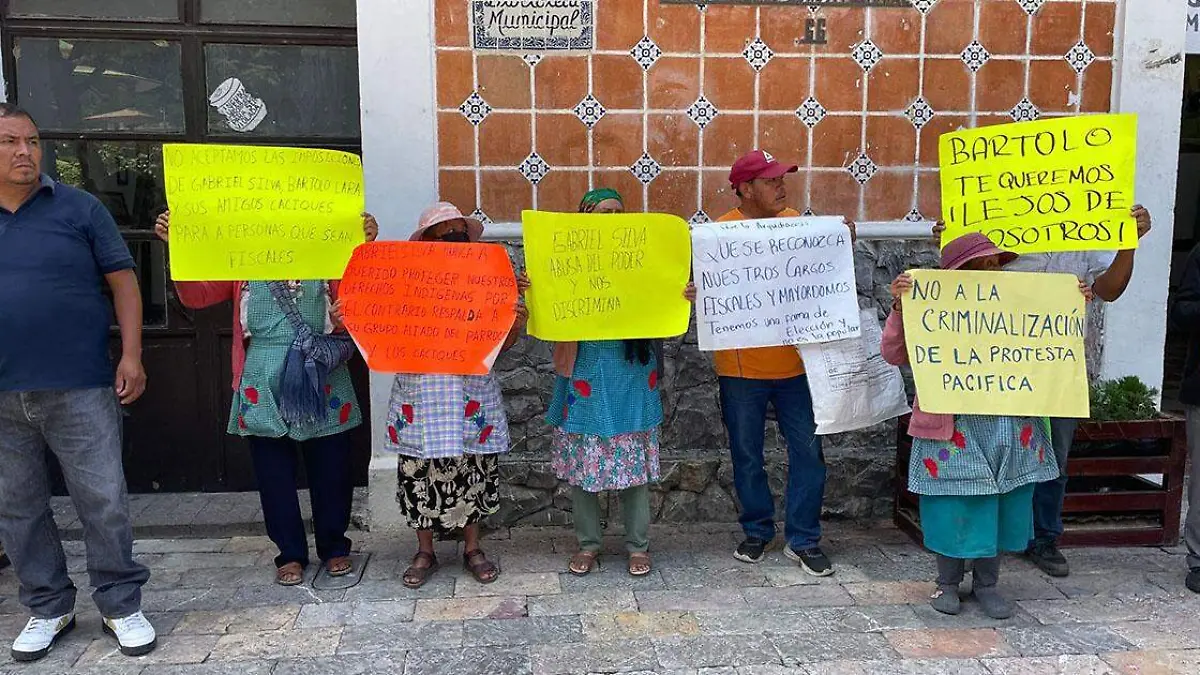 Biblioteca
Municipal
66
NO ACEPTAMOS LAS IMPOSICIONES
DE GABRIEL SILVA, BARTOLO LAPA
Y SUS AMIGOS CACIQUES
PARA A PERSONAS QUE SEAN
FISCALES
QUERIDO PROTEGER NUESTROS
DERECHOS INDIGENAS POR
EL CONTRARIO RESPALDA A
SU GRUPO ALIADO DEL PARROCO
Y LOS CACIQUES
GABRIEL SILVA
ABUSA DEL PODER
Y NOS
DISCRIMINA
QUE SE RECONOZCA
NUESTROS CARGOS
FISCALES Y MAYORDOMOS
Tenemos una forma de
Elección y
no es popular
BARTOLO
TE QUEREMOS
¡LEJOS DE
NOSOTROS!
NO A LA
CRIMINALIZACIÓN
DE LA PROTESTA
PACIFICA